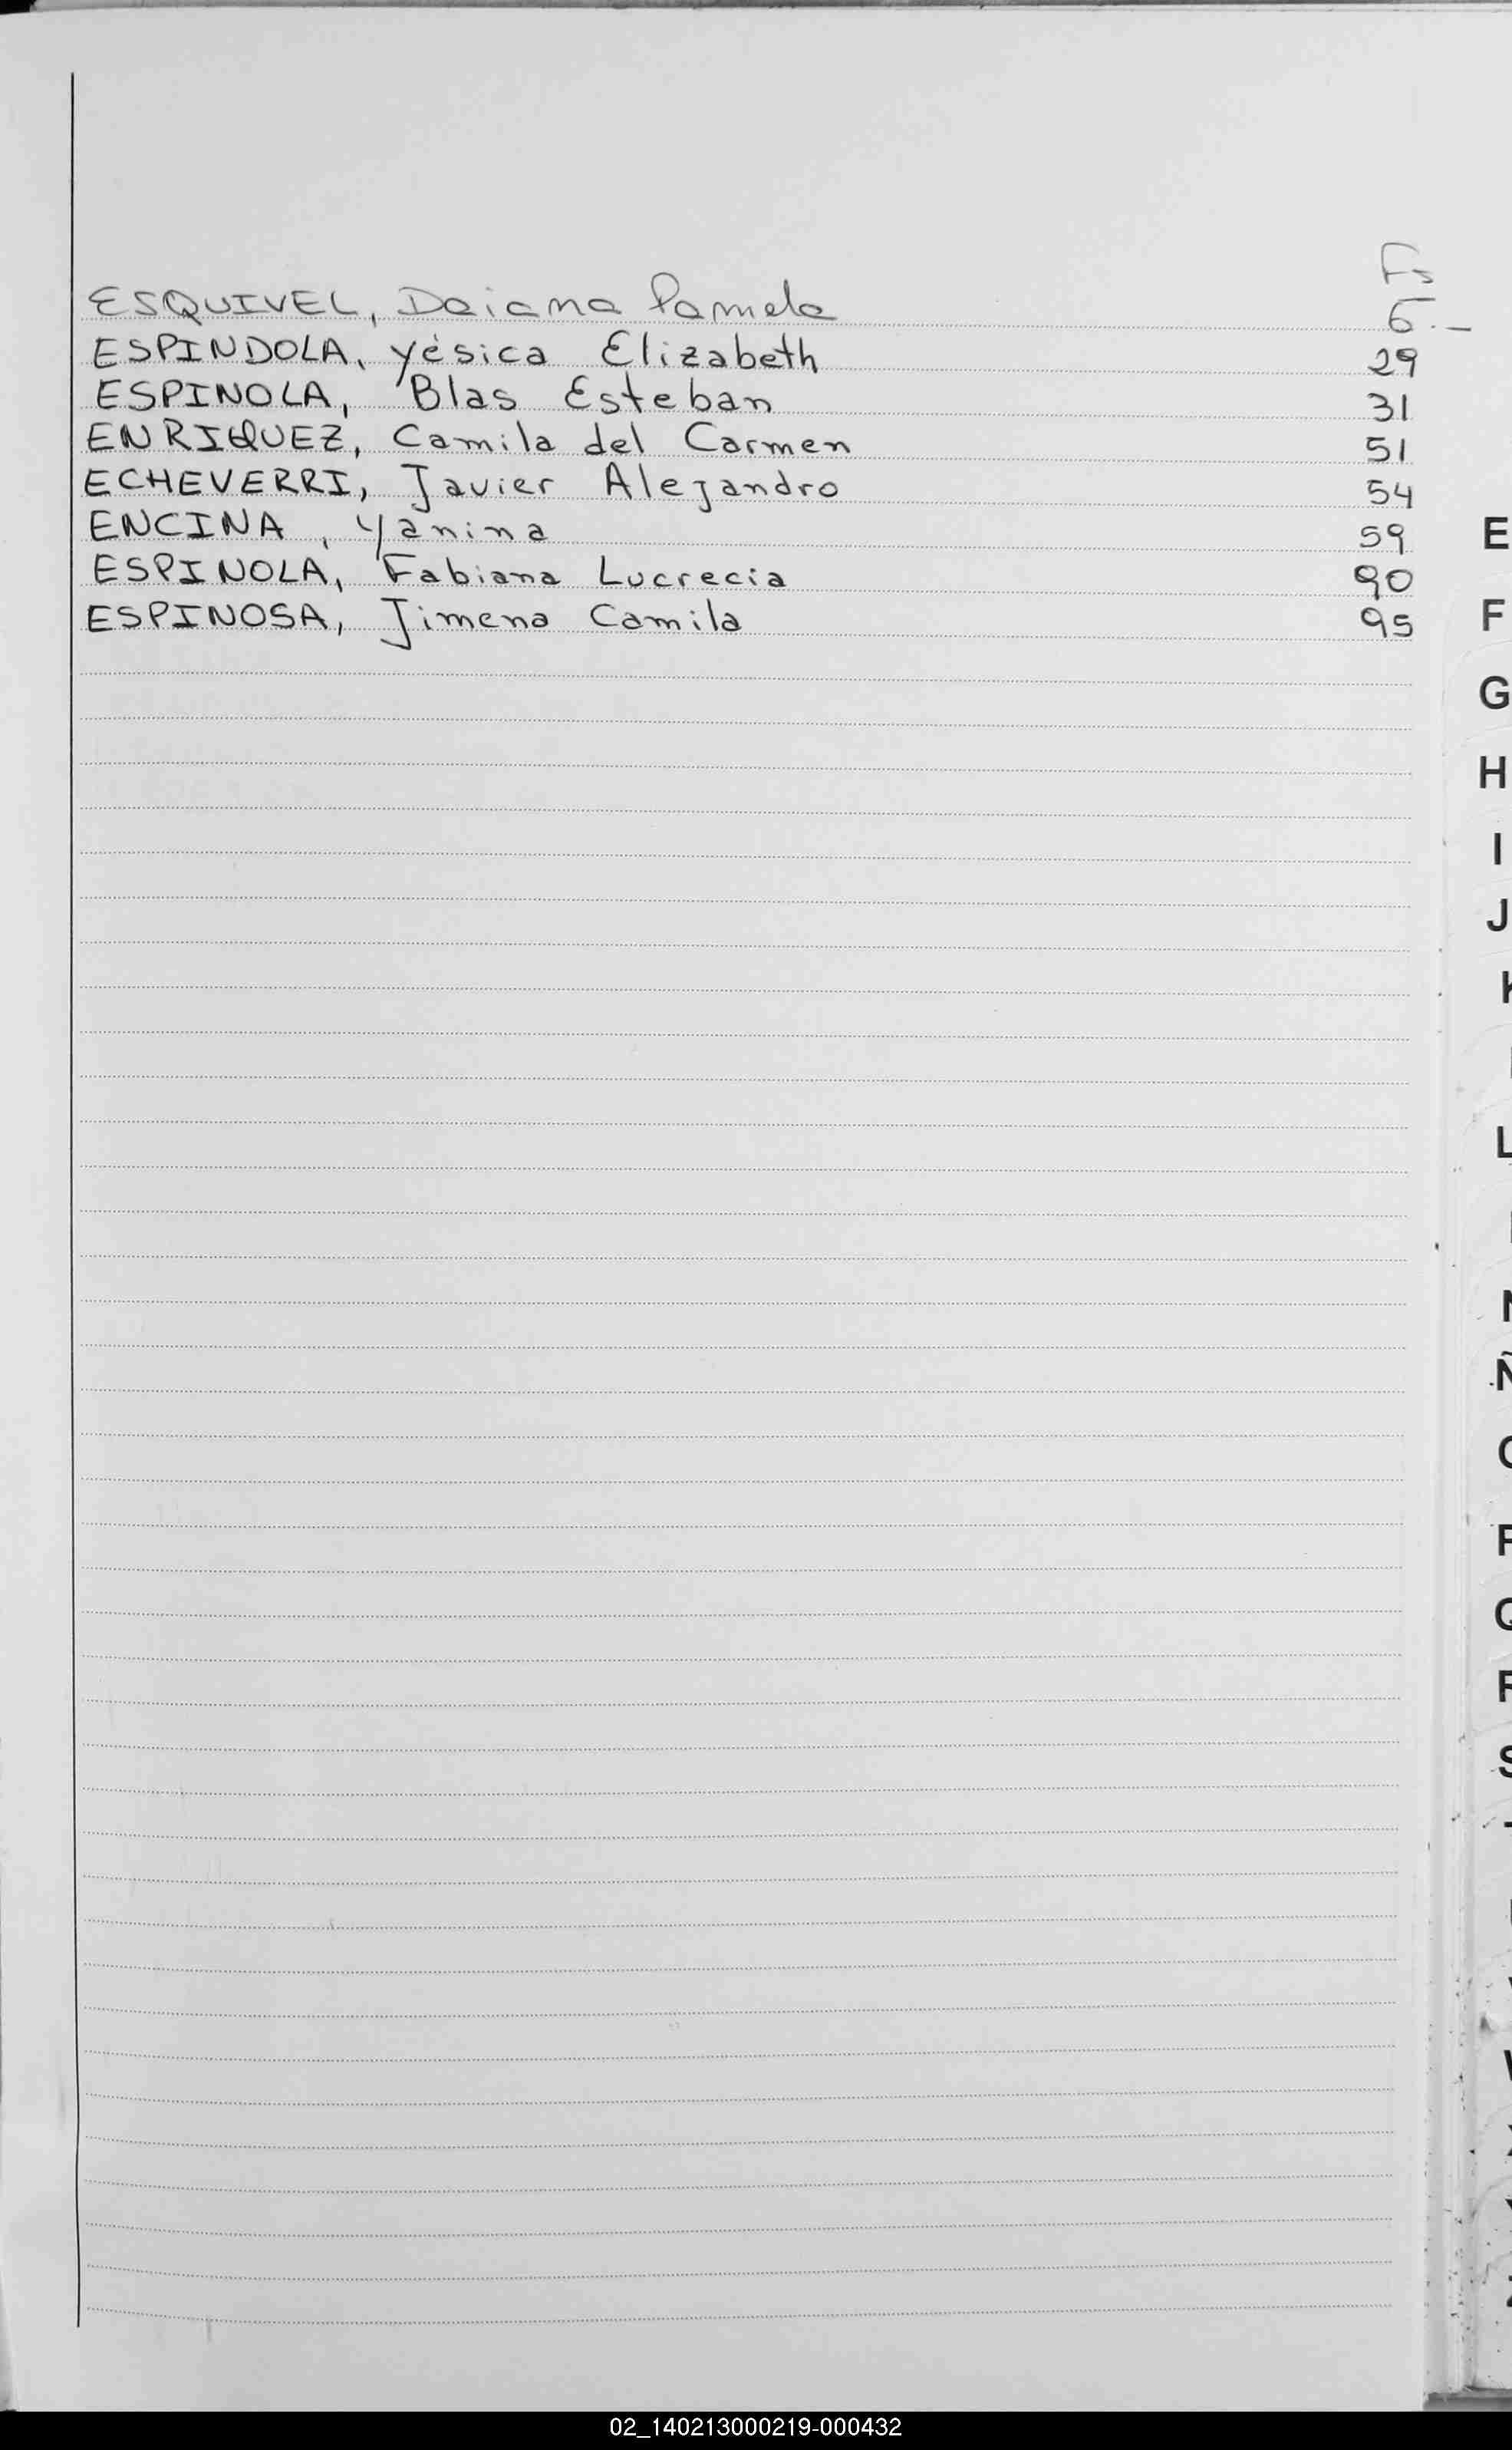 Fs
ESQUIVEL, Daiana Pamela 6.-
ESPINDOLA, Yésica Elizabeth 29
ESPINOLA, Blas Esteban 31
ENRIQUEZ, Camila del Carmen 51
ECHEVERRI, Javier Alejandro 54
ENCINA, Yanina 59
ESPINOLA, Fabiana Lucrecia 90
ESPINOSA, Jimena Camila 95
E
F
G
H
I
J
K
L
N
Ñ
O
P
Q
R
S
02_140213000219-000432